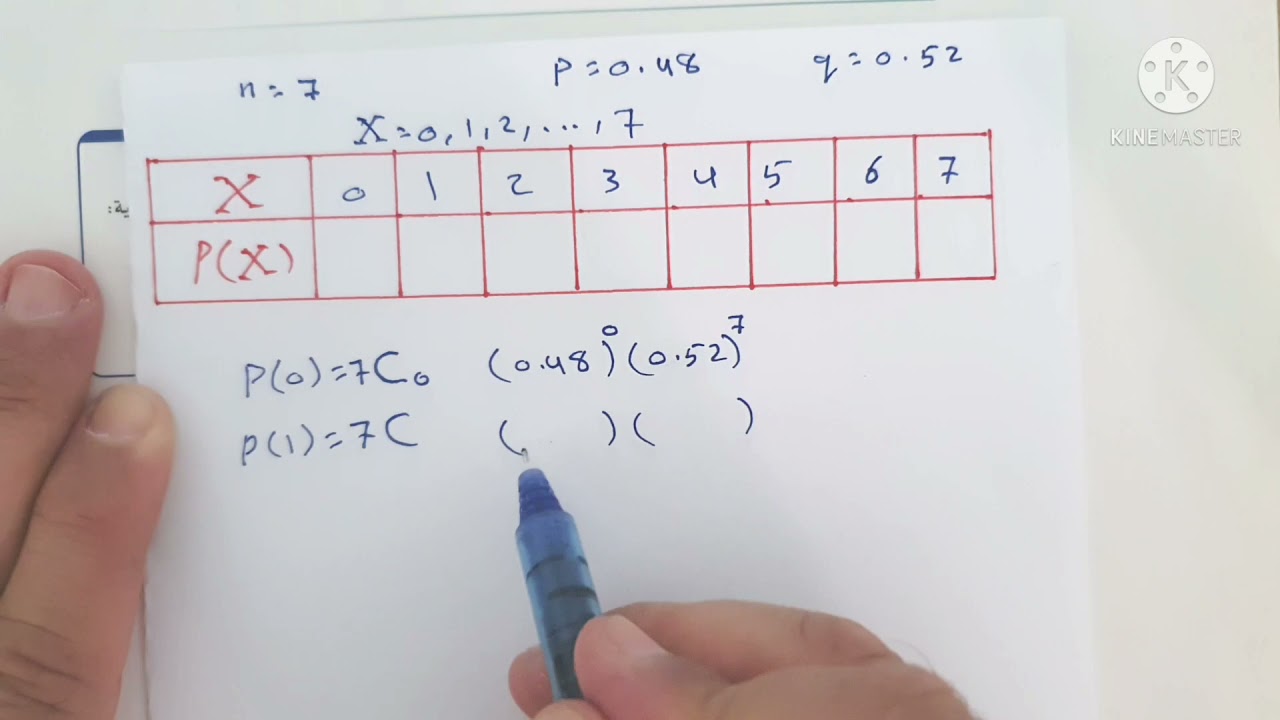 n = 7 p = 0.48 q = 0.52
KINEMASTER
X = 0, 1, 2, ..., 7
X 0 1 2 3 4 5 6 7
P(X)
P(0) = 7C₀ (0.48)⁰ (0.52)⁷
P(1) = 7C ( ) ( )